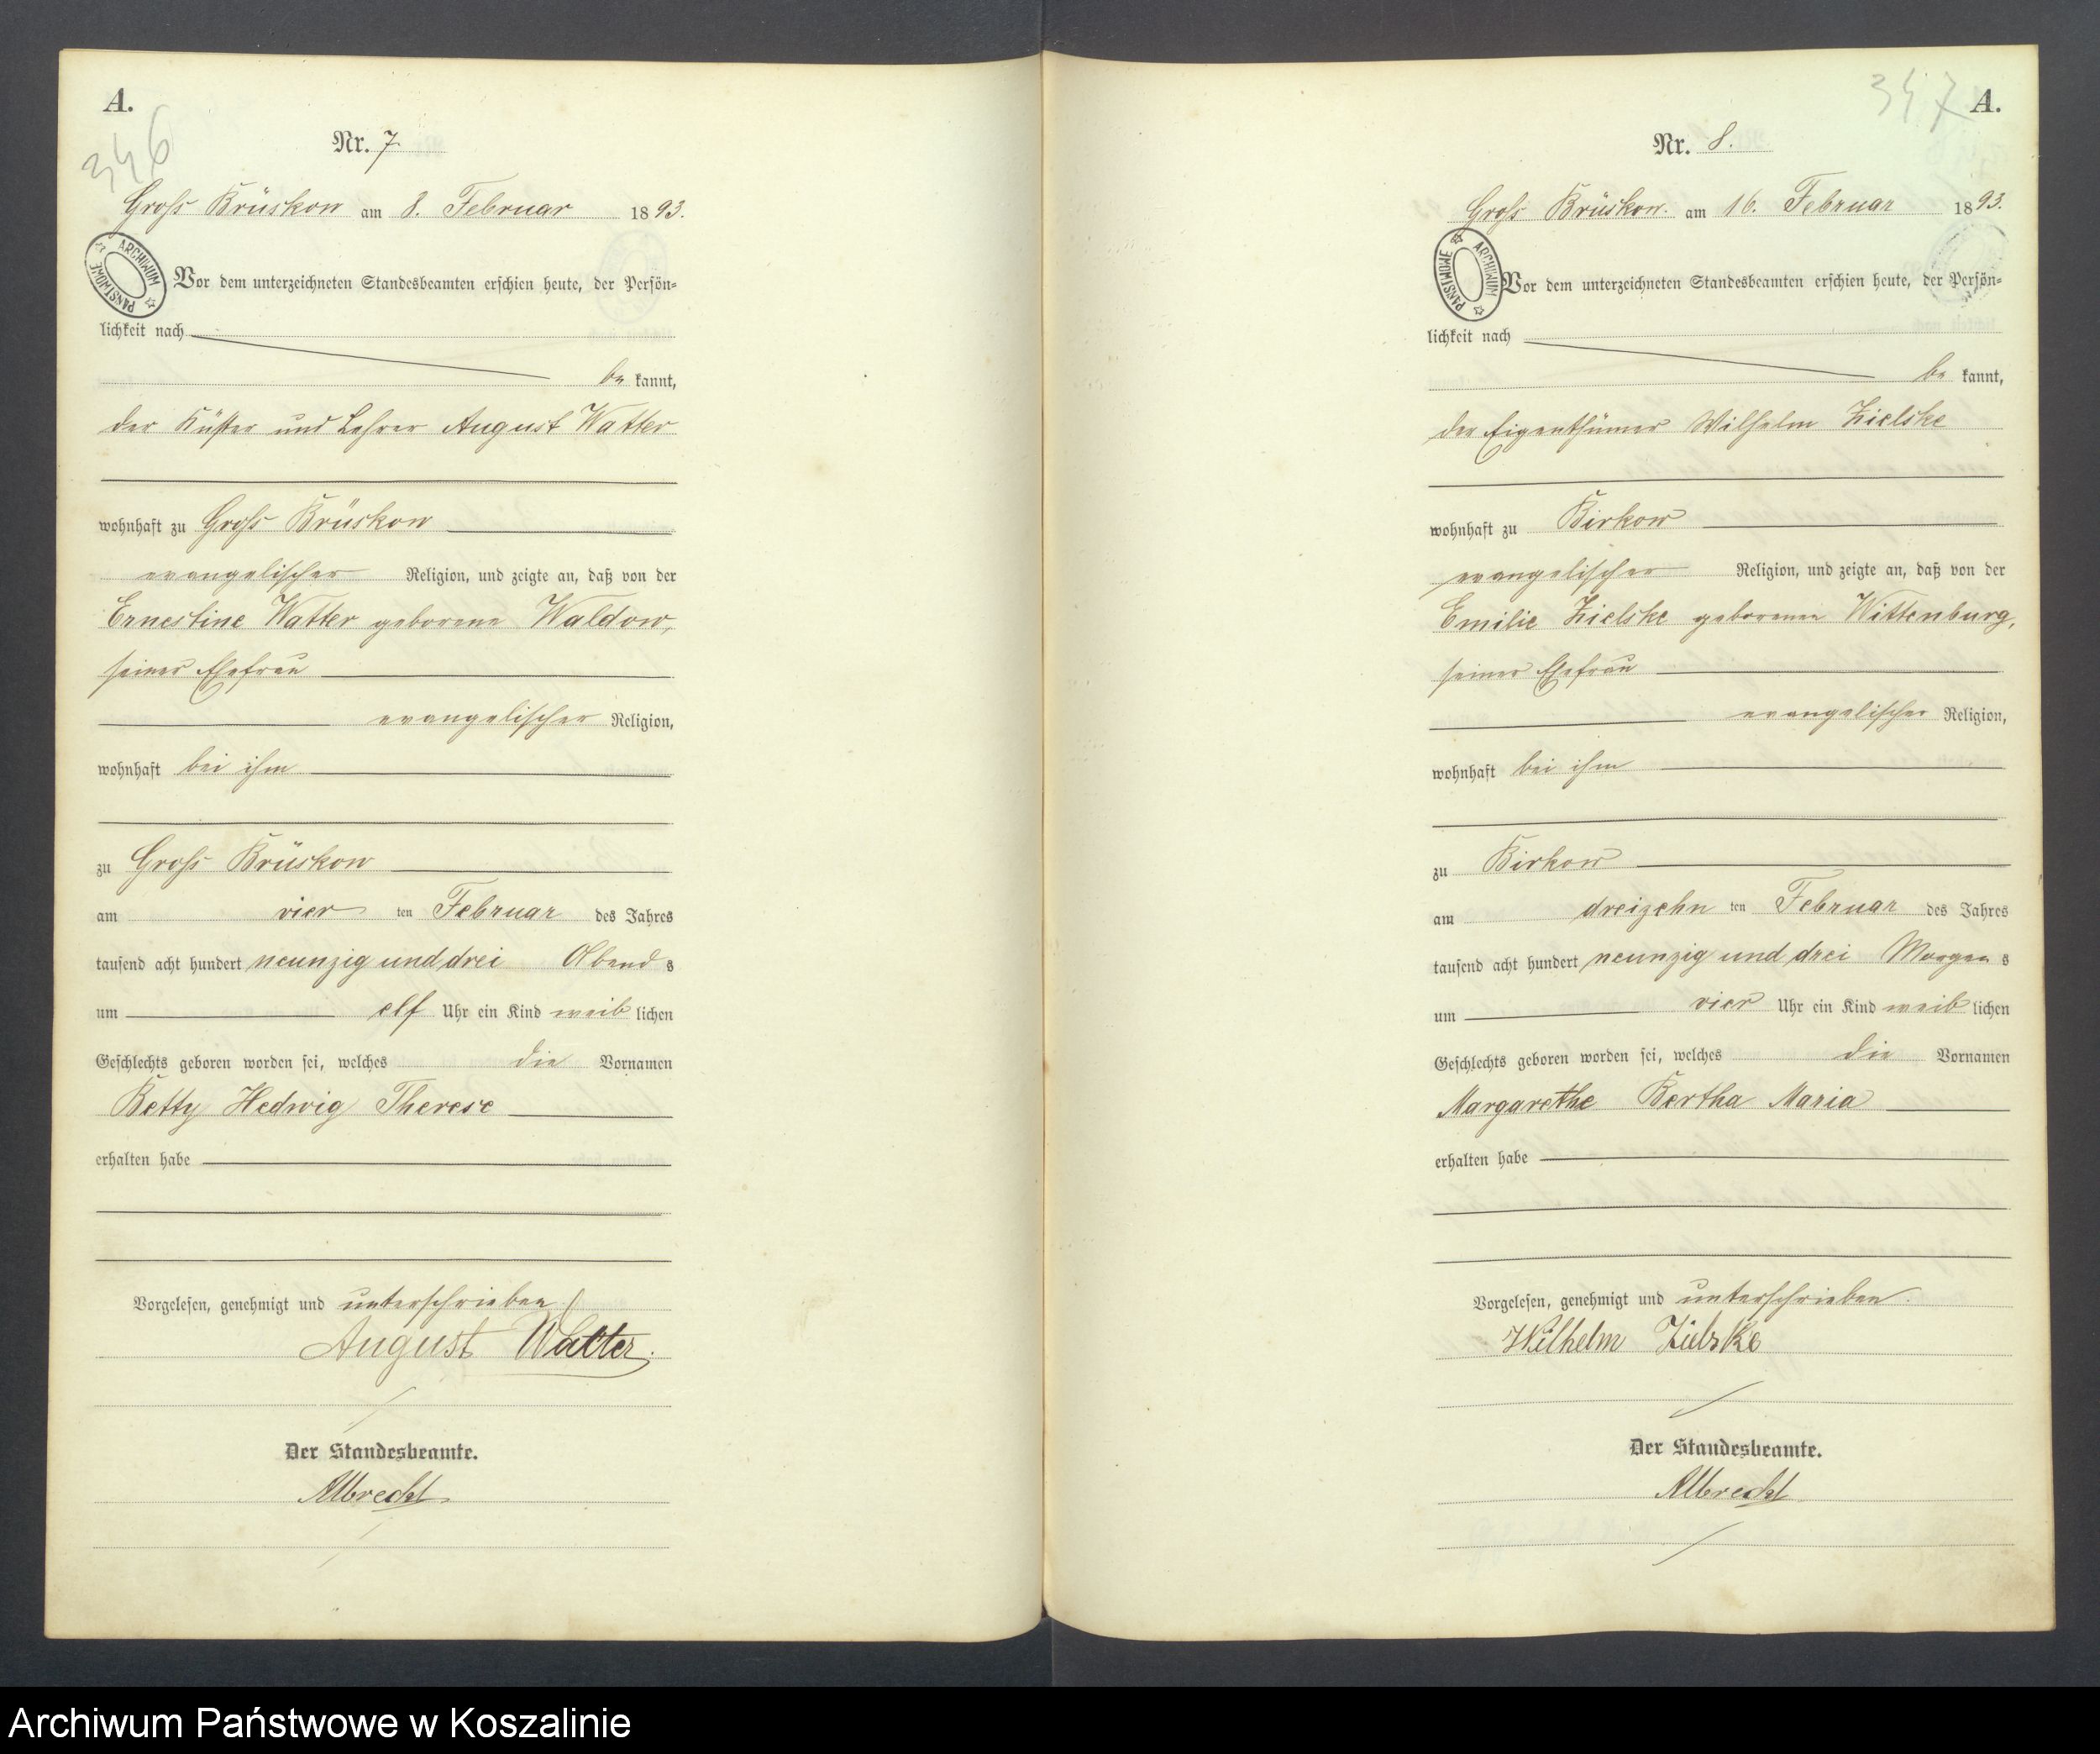 A.
346
Nr. 7.
Groß Brüskow am 8. Februar 1893.
ARCHIWUM PAŃSTWOWE
Vor dem unterzeichneten Standesbeamten erschien heute, der Persön=
lichkeit nach
be kannt,
der Küster und Lehrer August Watter
wohnhaft zu Groß Brüskow
evangelischer Religion, und zeigte an, daß von der
Ernestine Watter geborene Waldow,
seiner Ehefrau
evangelischer Religion,
wohnhaft bei ihm
zu Groß Brüskow
am vier ten Februar des Jahres
tausend acht hundert neunzig und drei Abend s
um elf Uhr ein Kind weib lichen
Geschlechts geboren worden sei, welches die Vornamen
Betty Hedwig Therese
erhalten habe
Vorgelesen, genehmigt und unterschrieben
August Watter.
Der Standesbeamte.
Albrecht
347
A.
Nr. 8.
Groß Brüskow. am 16. Februar 1893.
ARCHIWUM PAŃSTWOWE
Vor dem unterzeichneten Standesbeamten erschien heute, der Persön=
lichkeit nach
be kannt,
der Eigenthümer Wilhelm Zielske
wohnhaft zu Birkow
evangelischer Religion, und zeigte an, daß von der
Emilie Zielske geborenen Wittenburg,
seiner Ehefrau
evangelischer Religion,
wohnhaft bei ihm
zu Birkow
am dreizehn ten Februar des Jahres
tausend acht hundert neunzig und drei Morgen s
um vier Uhr ein Kind weib lichen
Geschlechts geboren worden sei, welches die Vornamen
Margarethe Bertha Maria
erhalten habe
Vorgelesen, genehmigt und unterschrieben.
Wilhelm Zielske
Der Standesbeamte.
Albrecht
Archiwum Państwowe w Koszalinie